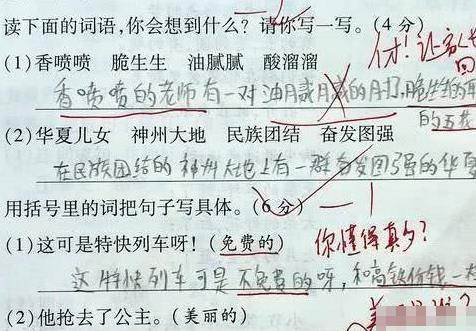 读下面的词语,你会想到什么?请你写一写。(4分)
(1)香喷喷 脆生生 油腻腻 酸溜溜
香喷喷的老师有一对油腻腻的
(2)华夏儿女 神州大地 民族团结 奋发图强
在民族团结的神州大地上有一群奋发图强的华夏
用括号里的词把句子写具体。(6分)
(1)这可是特快列车呀!(免费的)
你懂得真多?
这特快列车可是不免费的呀,和高铁价钱一
(2)他抢去了公主。(美丽的)